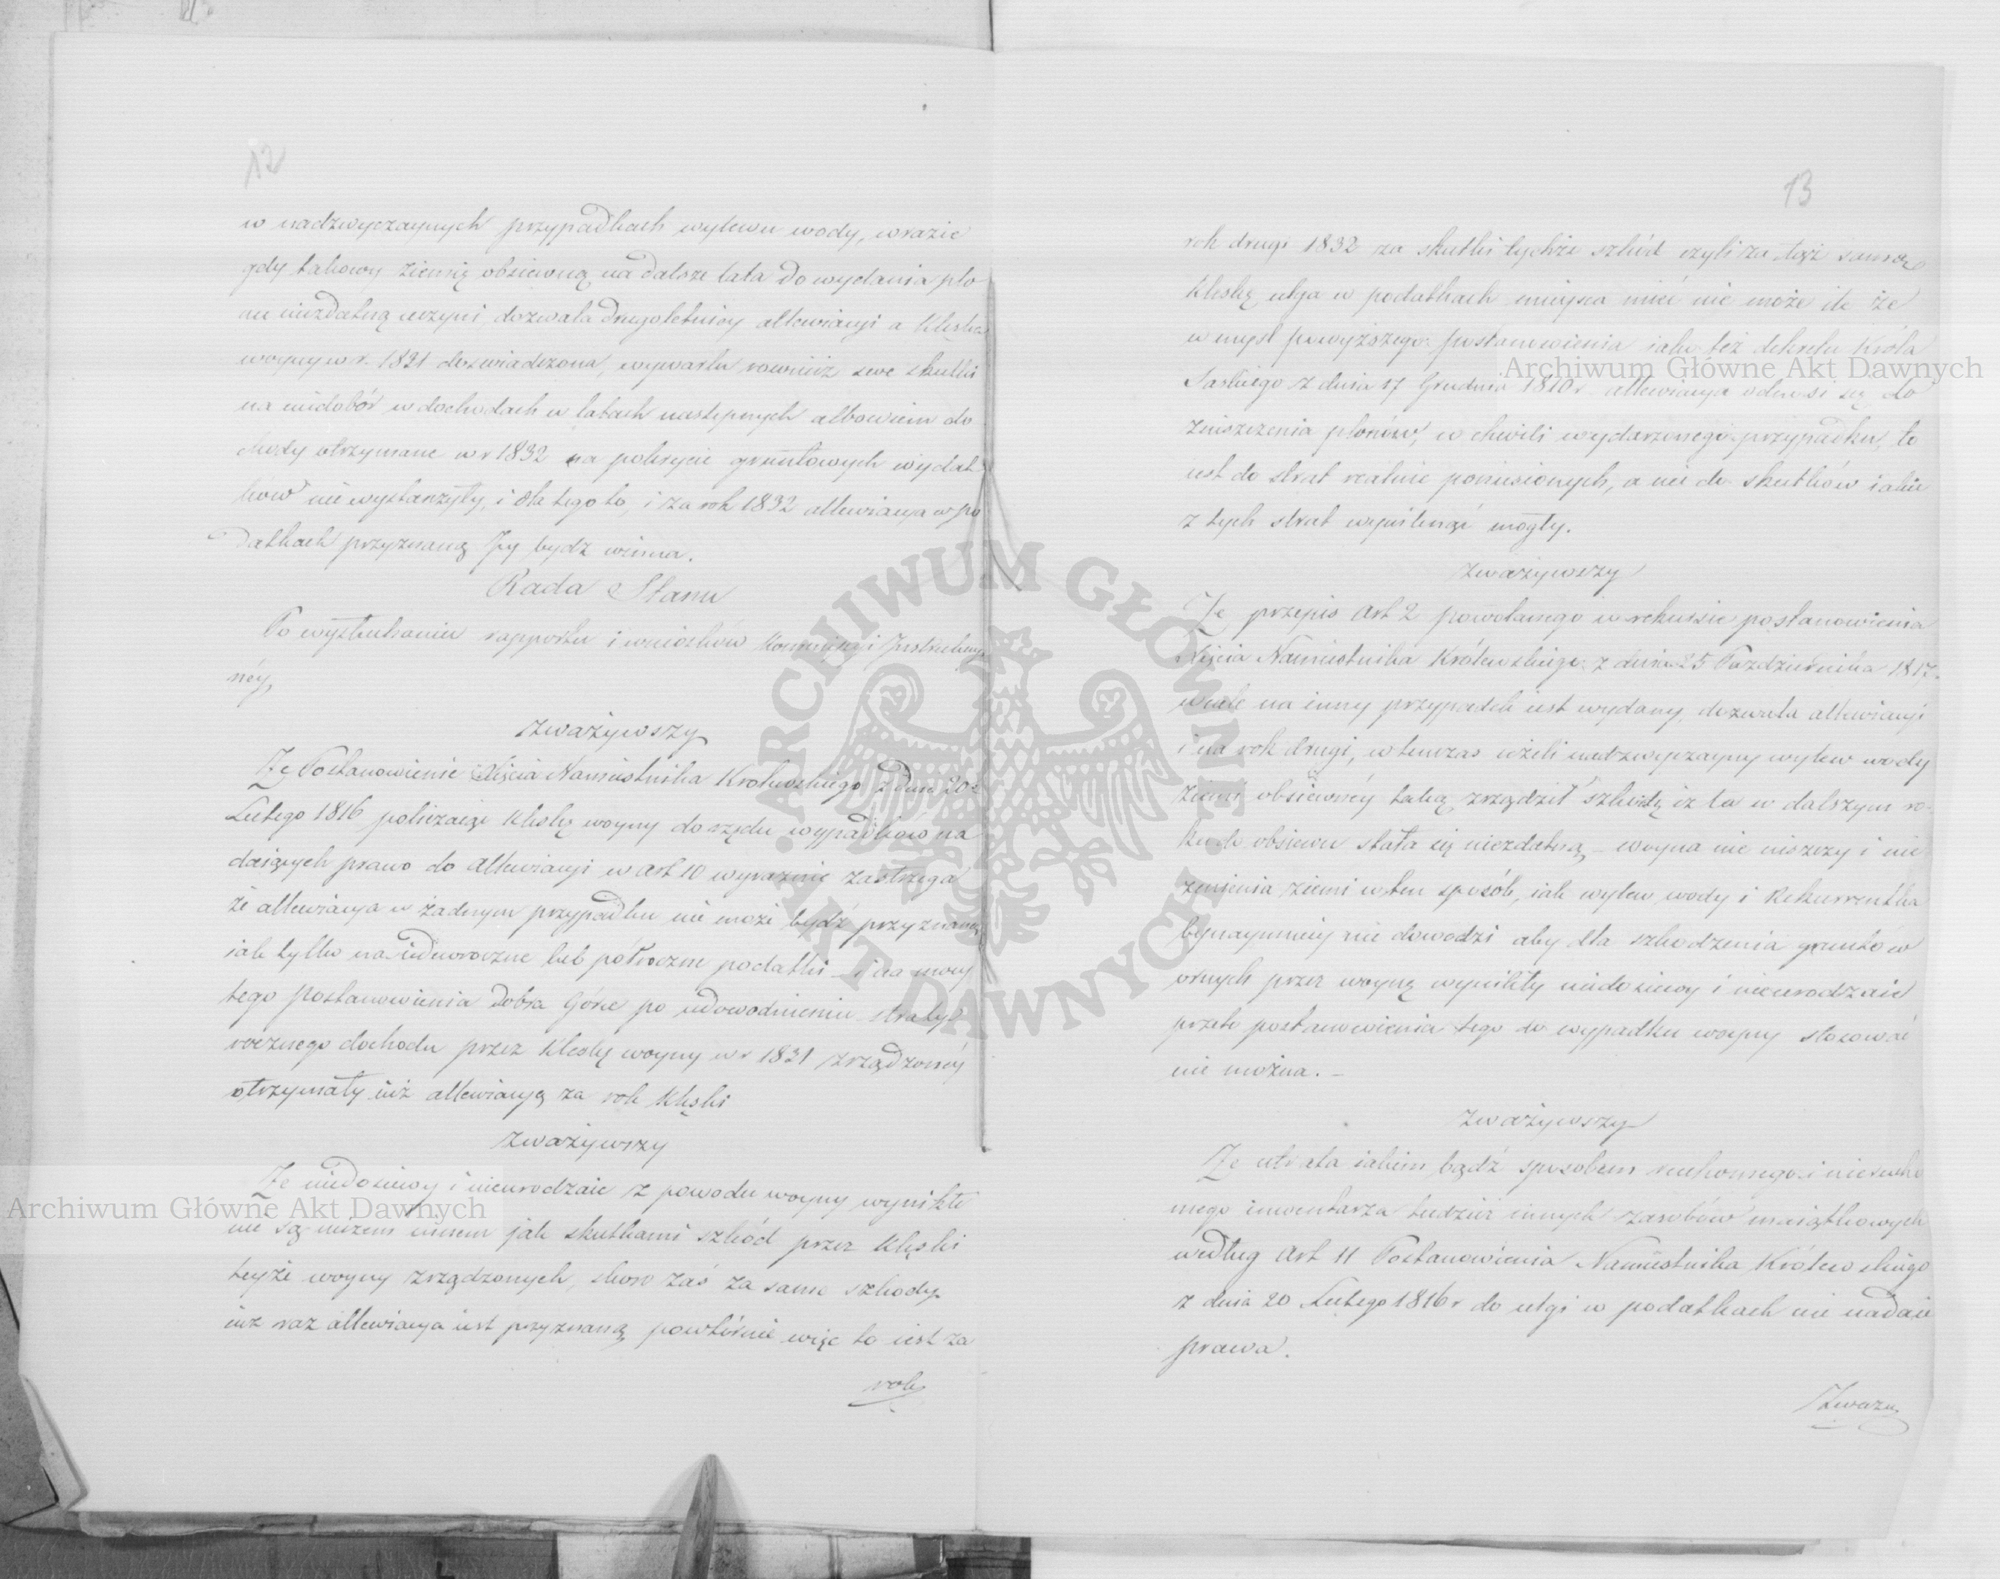 12
w nadzwyczaynych przypadkach wylewu wody, w razie
gdy takowy ziemię obsiewną na dalsze lata do wydania plo
nu niezdatną uczyni, dozwala drugoletniey allewiacyi a klęska
woyny w r. 1831 doświadczona, wywarła rownież swe skutki
na niedobór w dochodach w latach następnych albowiem do
chody otrzymane w r 1832 na pokrycie gruntowych wydat
ków nie wystarczyły, i dla tego to, i za rok 1832 allewiacya w po
datkach przyznaną Jey bydz winna.
Rada Stanu
Po wysłuchaniu rapportu i wniosków Kommissyi Instrukcyy
néy,
zważywszy
Że Postanowienie Xięcia Namiestnika Królewskiego z dnia 20
Lutego 1816 policzaiąc klęskę woyny do rzędu wypadków na
daiących prawo do allewiacyi w art 10 wyraźnie zastrzega
że allewiacya w żadnym przypadku nie może bydź przyznaną
iak tylko na iednoroczne lub półroczne podatki – i na mocy
tego postanowienia Dobra Góre po udowodnieniu straty
rocznego dochodu przez klęskę woyny w r 1831 zrządzonéy
otrzymały iuż allewiacyą za rok klęski
zważywszy
Że niedosiewy i nieurodzaie z powodu woyny wynikłe
nie są niczem innem jak skutkami szkód przez klęski
teyże woyny zrządzonych, skoro zaś za same szkody
iuż raz allewiacya iest przyznaną powtórnie więc to iest za
rok
13
rok drugi 1832 za skutki tychże szkód czyli za tęż samę
klęskę ulga w podatkach mieysca mieć nie może ile że
w myśl powyższego postanowienia iako też dekretu Króla
Saskiego z dnia 17 Grudnia 1810 r allewiacya odnosi się do
zniszczenia plonów, w chwili wydarzonego przypadku, to
iest do strat realnie poniesionych, a nie do skutków iakie
z tych strat wyniknąć mogły.
zważywszy
Że przepis Art 2 powołanego w rekursie postanowienia
Xięcia Namiestnika Królewskiego z dnia 25 Października 1817
wcale na inny przypadek iest wydany, dozwala allewiacyi
i na rok drugi, w tenczas ieżeli nadzwyczayny wylew wody
ziemi obsiewnéy taką zrządził szkodę iż ta w dalszym ro-
ku do obsiewu stała się niezdatną – woyna nie niszczy i nie
zmienia ziemi w ten sposób, iak wylew wody i Rekurrentka
bynaymniey nie dowodzi aby dla szkodzenia gruntów
ornych przez woynę wynikły niedosiewy i nieurodzaie
przeto postanowienia tego do wypadku woyny stosować
nie można. –
zważywszy
Że utrata iakim bądź sposobem ruchomego i nierucho
mego inwentarza tudzież innych zasobów maiątkowych
według Art 11 Postanowienia Namiestnika Królewskiego
z dnia 20 Lutego 1816 r do ulgi w podatkach nie nadaie
prawa.
Zważy
Archiwum Główne Akt Dawnych
Archiwum Główne Akt Dawnych
ARCHIWUM GŁÓWNE
AKT DAWNYCH